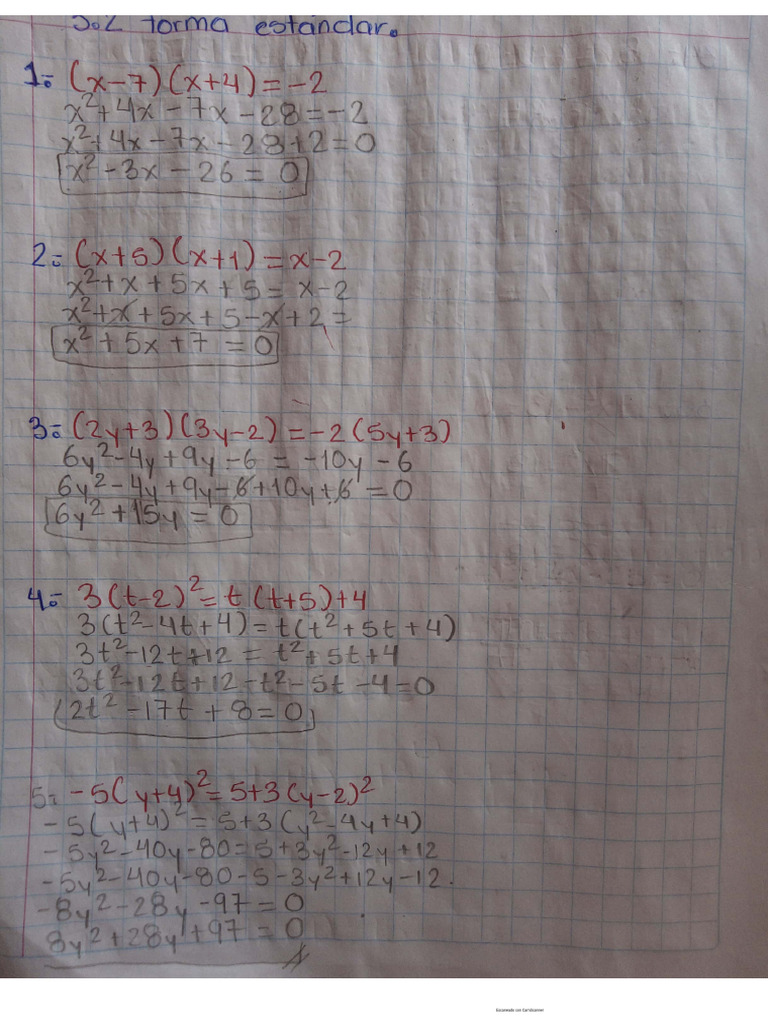 5.2 forma estándar.
1= (x-7)(x+4)=-2
x²+4x-7x-28=-2
x²+4x-7x-28+2=0
x²-3x-26=0
2= (x+5)(x+1)=x-2
x²+x+5x+5=x-2
x²+x+5x+5-x+2=
x²+5x+7=0
3= (2y+3)(3y-2)=-2(5y+3)
6y²-4y+9y-6=-10y-6
6y²-4y+9y-6+10y+6=0
6y²+15y=0
4= 3(t-2)²=t(t+5)+4
3(t²-4t+4)=t(t²+5t+4)
3t²-12t+12=t²+5t+4
3t²-12t+12-t²-5t-4=0
2t²-17t+8=0
5= -5(y+4)²=5+3(y-2)²
-5(y+4)²=5+3(y²-4y+4)
-5y²-40y-80=5+3y²-12y+12
-5y²-40y-80-5-3y²+12y-12.
-8y²-28y-97=0
8y²+28y+97=0
Escaneado con CamScanner